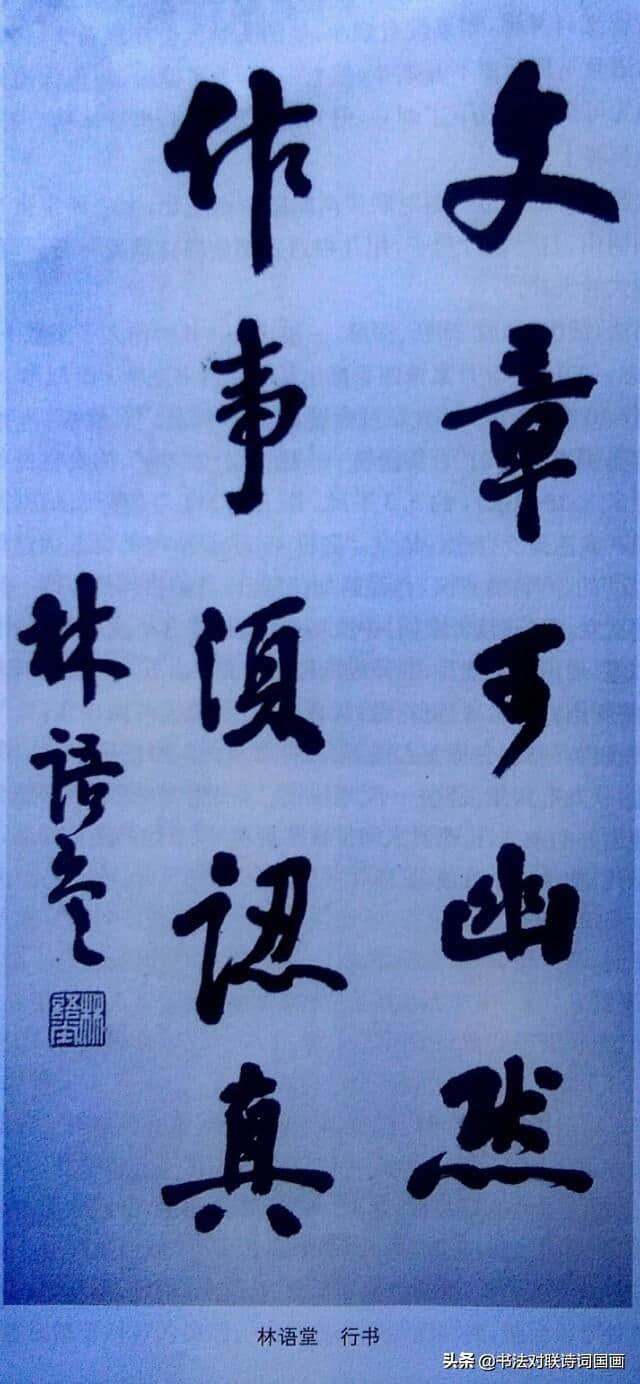 文章可幽默
作事須認真
林語堂
林語堂
林语堂 行书
头条 @书法对联诗词国画